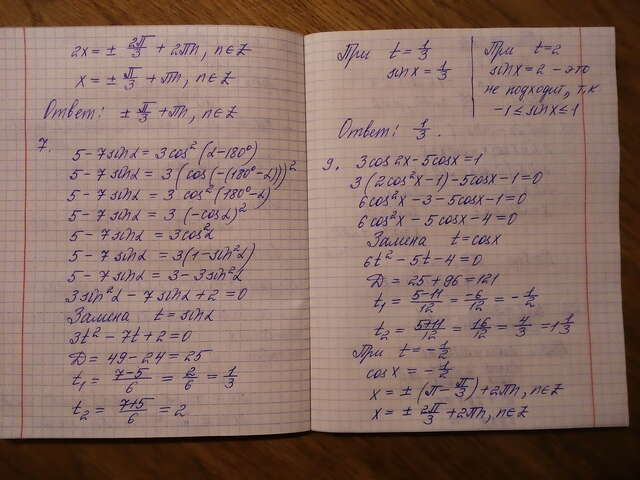 2x = ± 2π/3 + 2πn, n∈Z
x = ± π/3 + πn, n∈Z
Ответ: ± π/3 + πn, n∈Z
7.
5 - 7sinα = 3cos²(α-180°)
5 - 7sinα = 3(cos(-(180°-α)))²
5 - 7sinα = 3 cos²(180°-α)
5 - 7sinα = 3 (-cosα)²
5 - 7sinα = 3cos²α
5 - 7sinα = 3(1-sin²α)
5 - 7sinα = 3 - 3sin²α
3sin²α - 7sinα + 2 = 0
Замена t = sinα
3t² - 7t + 2 = 0
D = 49 - 24 = 25
t₁ = (7-5)/6 = 2/6 = 1/3
t₂ = (7+5)/6 = 2
При t = 1/3
sinx = 1/3
При t=2
sinx = 2 - это
не подходит, т.к
-1 ≤ sinx ≤ 1
Ответ: 1/3.
9. 3cos2x - 5cosx = 1
3(2cos²x-1) - 5cosx - 1 = 0
6cos²x - 3 - 5cosx - 1 = 0
6cos²x - 5cosx - 4 = 0
Замена t = cosx
6t² - 5t - 4 = 0
D = 25 + 96 = 121
t₁ = (5-11)/12 = -6/12 = -1/2
t₂ = (5+11)/12 = 16/12 = 4/3 = 1 1/3
При t = -1/2
cosx = -1/2
x = ± (π - π/3) + 2πn, n∈Z
x = ± 2π/3 + 2πn, n∈Z